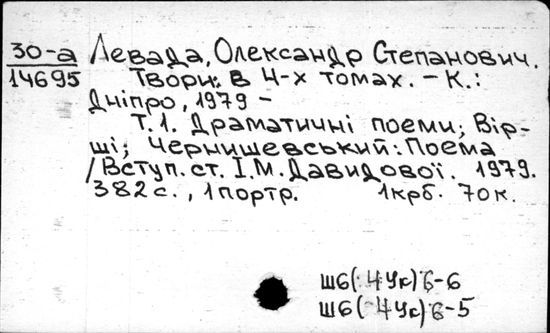 30-а Левада, Олександр Степанович.
14695 Твори: в 4-х томах. – К.:
Дніпро, 1979 –
Т. 1. Драматичні поеми; Вір-
ші; Чернишевський: Поема
/ Вступ. ст. І. М. Давидової. 1979.
382 с., 1 портр. 1 крб. 70 к.
Ш6(4Ук)6-6
Ш6(4Ук)6-5